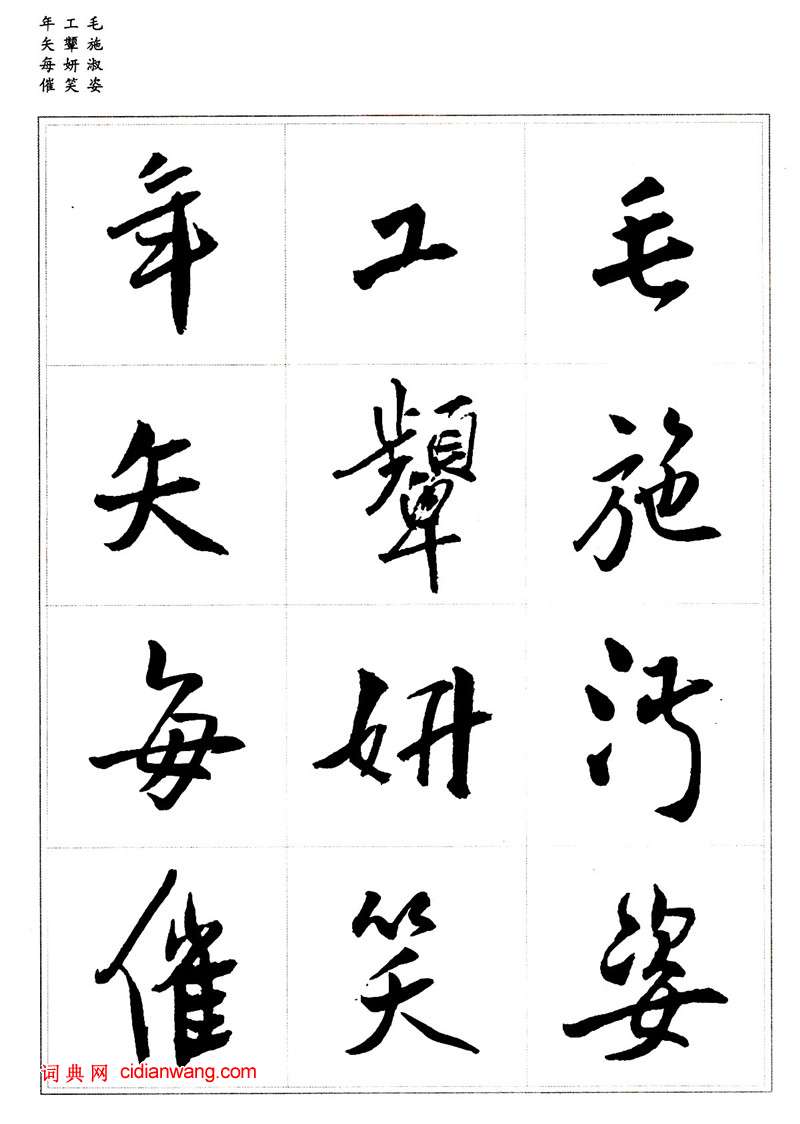 毛施淑姿
工顰妍笑
年矢每催
毛施淑姿
工顰妍笑
年矢每催
词典网 cidianwang.com